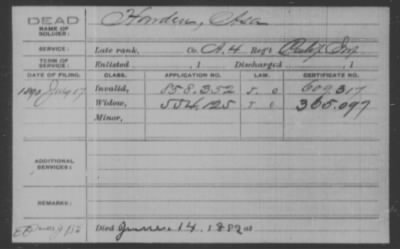 DEAD
NAME OF SOLDIER: Asa
SERVICE: Late rank, Co. A, 4 Reg't Inf.
TERM OF SERVICE: Enlisted , 1 Discharged , 1
DATE OF FILING. CLASS. APPLICATION NO. LAW. CERTIFICATE NO.
1890 July 17 Invalid, 858.352 J. C
Widow, 554.125 365.097
Minor,
ADDITIONAL SERVICES:
REMARKS:
Died June 14, 1892 at